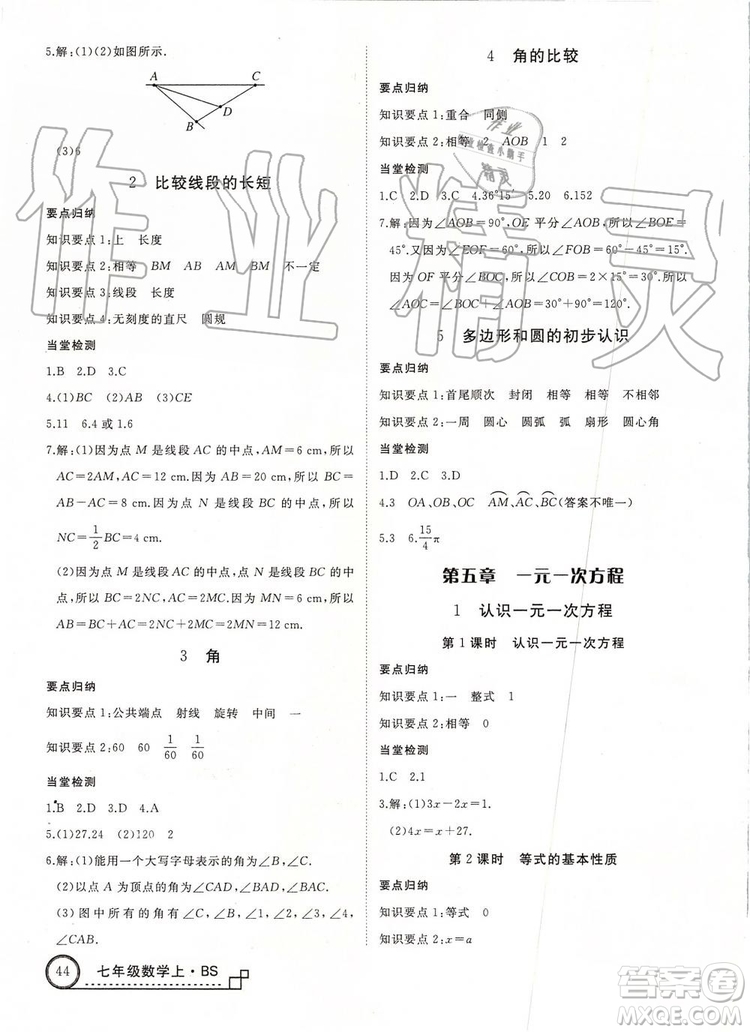 5.解:(1)(2)如图所示.
A C
D
B
(3)6
2 比较线段的长短
要点归纳
知识要点1:上 长度
知识要点2:相等 BM AM AB AM BM 不一定
知识要点3:线段 长度
知识要点4:无刻度的直尺 圆规
当堂检测
1.B 2.D 3.C
4.(1)BC (2)AB (3)CE
5.11 6.4或1.6
7.解:(1)因为点M是线段AC的中点,AM=6 cm,所以
AC=2AM,AC=12 cm.因为AB=20 cm,所以BC=
AB-AC=8 cm.因为点N是线段BC的中点,所以
NC=1/2BC=4 cm.
(2)因为点M是线段AC的中点,点N是线段BC的中
点,所以BC=2NC,AC=2MC.因为MN=6 cm,所以
AB=BC+AC=2NC+2MC=2MN=2×6=12(cm).
3 角
要点归纳
知识要点1:公共端点 射线 旋转 中间 一
知识要点2:60 60 1/60 1/60
当堂检测
1.B 2.D 3.D 4.A
5.(1)27.24 (2)120 2
6.解:(1)能用一个大写字母表示的角为∠B,∠C.
(2)以点A为顶点的角为∠CAD,∠BAD,∠BAC.
(3)图中所有的角为∠B,∠C,∠1,∠2,∠3,∠4,
∠CAB.
44 七年级数学上·BS
4 角的比较
要点归纳
知识要点1:重合 同侧
知识要点2:相等 AOB 1 2
当堂检测
1.C 2.D 3.C 4.36°15′ 5.20 6.152
7.解:因为∠AOB=90°,OE平分∠AOB,所以∠BOE=
45°.又因为∠EOF=60°,所以∠BOF=60°-45°=15°.
因为OF平分∠BOC,所以∠BOC=2×15°=30°.所以
∠AOC=∠BOC+∠AOB=30°+90°=120°.
5 多边形和圆的初步认识
要点归纳
知识要点1:首尾顺次 封闭 相等 相等 不相邻
知识要点2:一周 圆心 圆弧 弧 扇形 圆心角
当堂检测
1.D 2.C 3.D
4.3 OA、OB、OC AM、AC、BC(答案不唯一)
5.3 6.15/4π
第五章 一元一次方程
1 认识一元一次方程
第1课时 认识一元一次方程
要点归纳
知识要点1:一 整式 1
知识要点2:相等 0
当堂检测
1.C 2.1
3.解:(1)3x-2x=1.
(2)4x=x+27.
第2课时 等式的基本性质
要点归纳
知识要点1:等式 0
知识要点2:x=a
作业精灵
作业
作业检查小帮手
精灵
答案圈
MXQE.COM